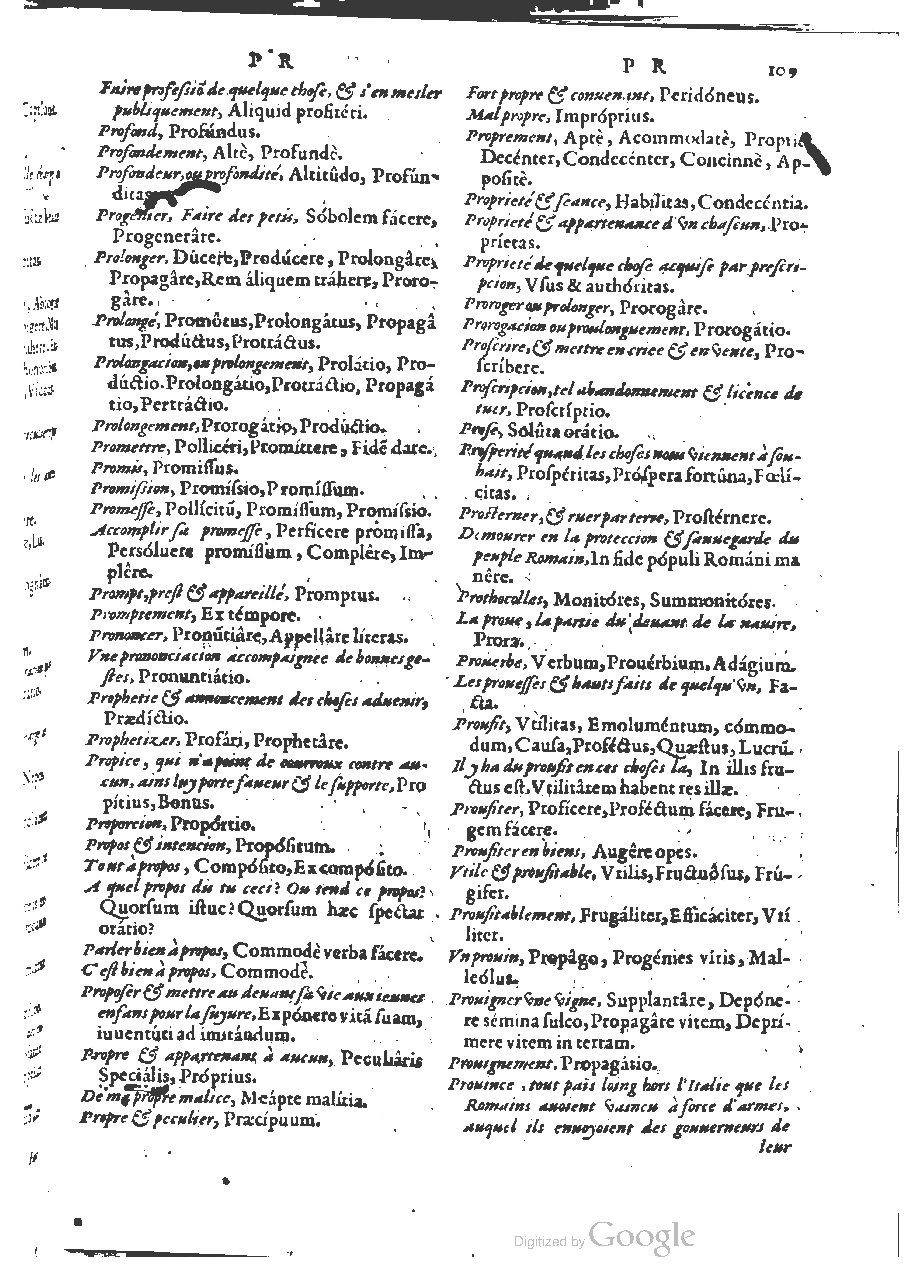 P R
Faire professiō de quelque chose, & s'en mesler
publiquement, Aliquid profitéri.
Profond, Profúndus.
Profondement, Altè, Profundè.
Profondeur, ou profondité, Altitûdo, Profún-
ditas
Progenier, Faire des petis, Sóbolem fácere,
Progenerâre.
Prolonger, Dúcere, Prodúcere, Prolongâre,
Propagâre, Rem áliquem tráhere, Proro-
gâre.
Prolongé, Promôtus, Prolongátus, Propagâ
tus, Prodúctus, Protráctus.
Prolongacion, ou prolongement, Prolátio, Pro-
dúctio. Prolongátio, Protráctio, Propagá
tio, Pertráctio.
Prolongement, Prorogátio, Prodúctio.
Promettre, Pollicéri, Promíttere, Fidē dare.
Promis, Promissus.
Promission, Promíssio, Promíssum.
Promesse, Pollícitū, Promíssum, Promíssio.
Accomplir sa promesse, Perfícere promíssa,
Persóluere promíssum, Complêre, Im-
plêre.
Prompt, prest & appareillé, Promptus.
Promptement, Ex témpore.
Prononcer, Pronūtiâre, Appellâre literas.
Vne prononciacion accompaignee de bonnes ge-
stes, Pronuntiátio.
Prophetie & annoncement des choses aduenir,
Prædíctio.
Prophetizer, Profári, Prophetâre.
Propice, qui n'a point de courroux contre au-
cun, ains luy porte faueur & le supporte, Pro
pítius, Bonus.
Proporcion, Propórtio.
Propos & intencion, Propósitum.
Tout à propos, Compósito, Ex compósito.
A quel propos dis tu ceci? Ou tend ce propos?
Quorsum istuc? Quorsum hæc spectat
orátio?
Parler bien à propos, Commodè verba fácere.
C'est bien à propos, Commodè.
Proposer & mettre au deuant sa vie aux ieunes
enfans pour la suyure, Expónero vitā suam,
iuuentúti ad imitándum.
Propre & appartenant à aucun, Peculiâris
Speciâlis, Próprius.
De ma propre malice, Meápte malítia.
Propre & peculier, Præcípuum.
P R 109
Fort propre & conuenant, Peridóneus.
Mal propre, Impróprius.
Proprement, Aptè, Acommodatè, Propriè
Decénter, Condecénter, Concinnè, Ap-
positè.
Proprieté & seance, Habílitas, Condecéntia.
Proprieté & appartenance d'vn chascun, Pro-
príetas.
Proprieté de quelque chose acquise par prescri-
pcion, Vsus & authóritas.
Proroger ou prolonger, Prorogâre.
Prorogacion ou proulonguement, Prorogátio.
Proscrire, & mettre en criee & en vente, Pro-
scríbere.
Proscripcion, tel abandonnement & licence de
tuer, Proscríptio.
Prose, Solûta orátio.
Prosperité quand les choses nous viennent à sou-
hait, Prospéritas, Próspera fortûna, Fœlí-
citas.
Prosterner, & ruer par terre, Prostérnere.
Demourer en la proteccion & sauuegarde du
peuple Romain, In fide pópuli Románi ma
nêre.
Prothocolles, Monitóres, Summonitóres.
La proue, la partie du deuant de la nauire,
Prora.
Prouerbe, Verbum, Prouérbium, Adágium.
Les prouesses & hauts faits de quelqu'vn, Fa-
cta.
Proufit, Vtílitas, Emoluméntum, cómmo-
dum, Causa, Proféctus, Quæstus, Lucrū.
Il y ha du proufit en ces choses la, In illis fru-
ctus est, Vtilitâtem habent res illæ.
Proufiter, Profícere, Proféctum fácere, Fru-
gem fácere.
Proufiter en biens, Augêre opes.
Vtile & proufitable, Vtilis, Fructuôsus, Frú-
gifer.
Proufitablement, Frugáliter, Efficáciter, Vtí
liter.
Vn prouin, Propâgo, Progénies vitis, Mal-
leólus.
Prouigner vne vigne, Supplantâre, Depóne-
re sémina sulco, Propagâre vitem, Deprí-
mere vitem in terram.
Prouignement, Propagátio.
Prouince, tout païs loing hors l'Italie que les
Romains auoient vaincu à force d'armes,
auquel ils enuoyoient des gouuerneurs de
leur
Digitized by Google